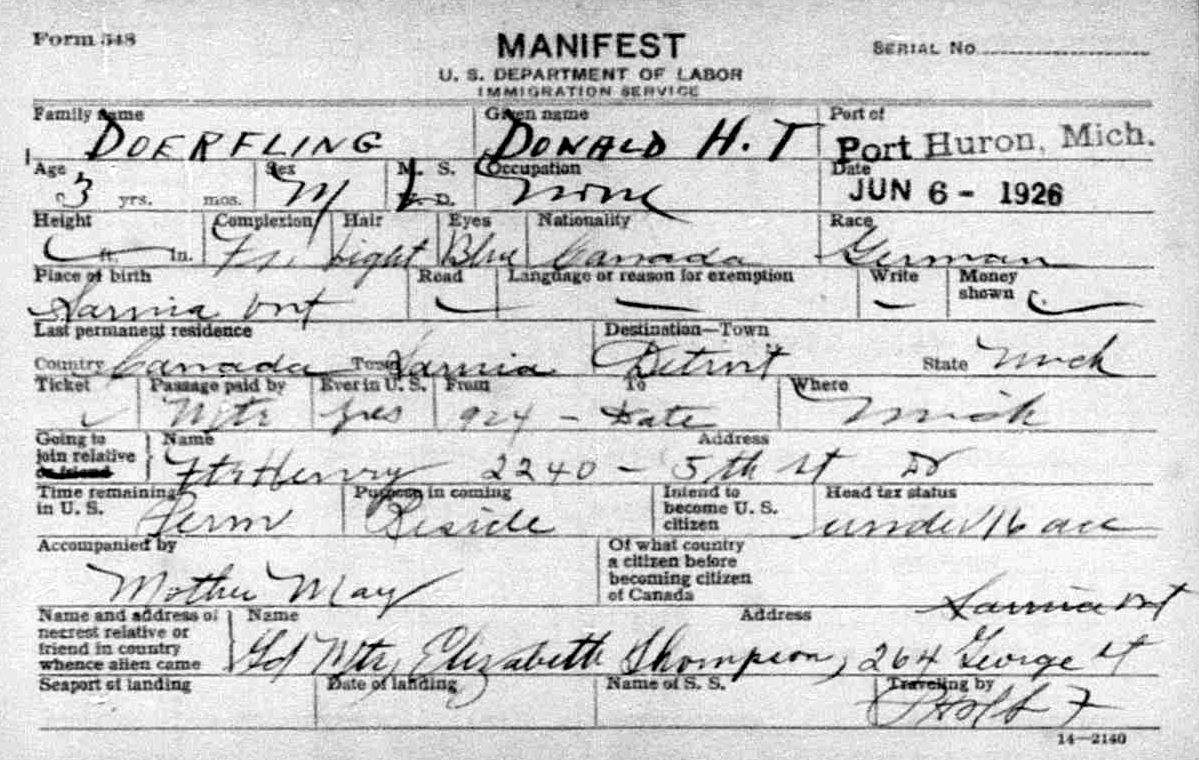 Form 548
MANIFEST
SERIAL No
U. S. DEPARTMENT OF LABOR
IMMIGRATION SERVICE
Family name Given name Port of
DOERFLING DONALD H. T Port Huron, Mich.
Age Sex M. S. Occupation Date
3 yrs. mos. M W. D. None JUN 6 - 1926
Height Complexion Hair Eyes Nationality Race
ft. in. Fr. Light Blue Canada German
Place of birth Read Language or reason for exemption Write Money shown
Sarnia Ont
Last permanent residence Destination—Town
Country Canada Town Sarnia Detroit State Mich
Ticket Passage paid by Ever in U. S. From To Where
Mtr yes 924 - Date Mich
Going to join relative or friend Name Address
Ftr Henry 2240 - 5th st
Time remaining in U. S. Purpose in coming Intend to become U. S. citizen Head tax status
Perm Reside under 16 acc
Accompanied by Of what country a citizen before becoming citizen of Canada
Mother May Sarnia Ont
Name and address of nearest relative or friend in country whence alien came Name Address
Gd Mtr, Elizabeth Thompson, 264 George st
Seaport of landing Date of landing Name of S. S. Traveling by
14—2140